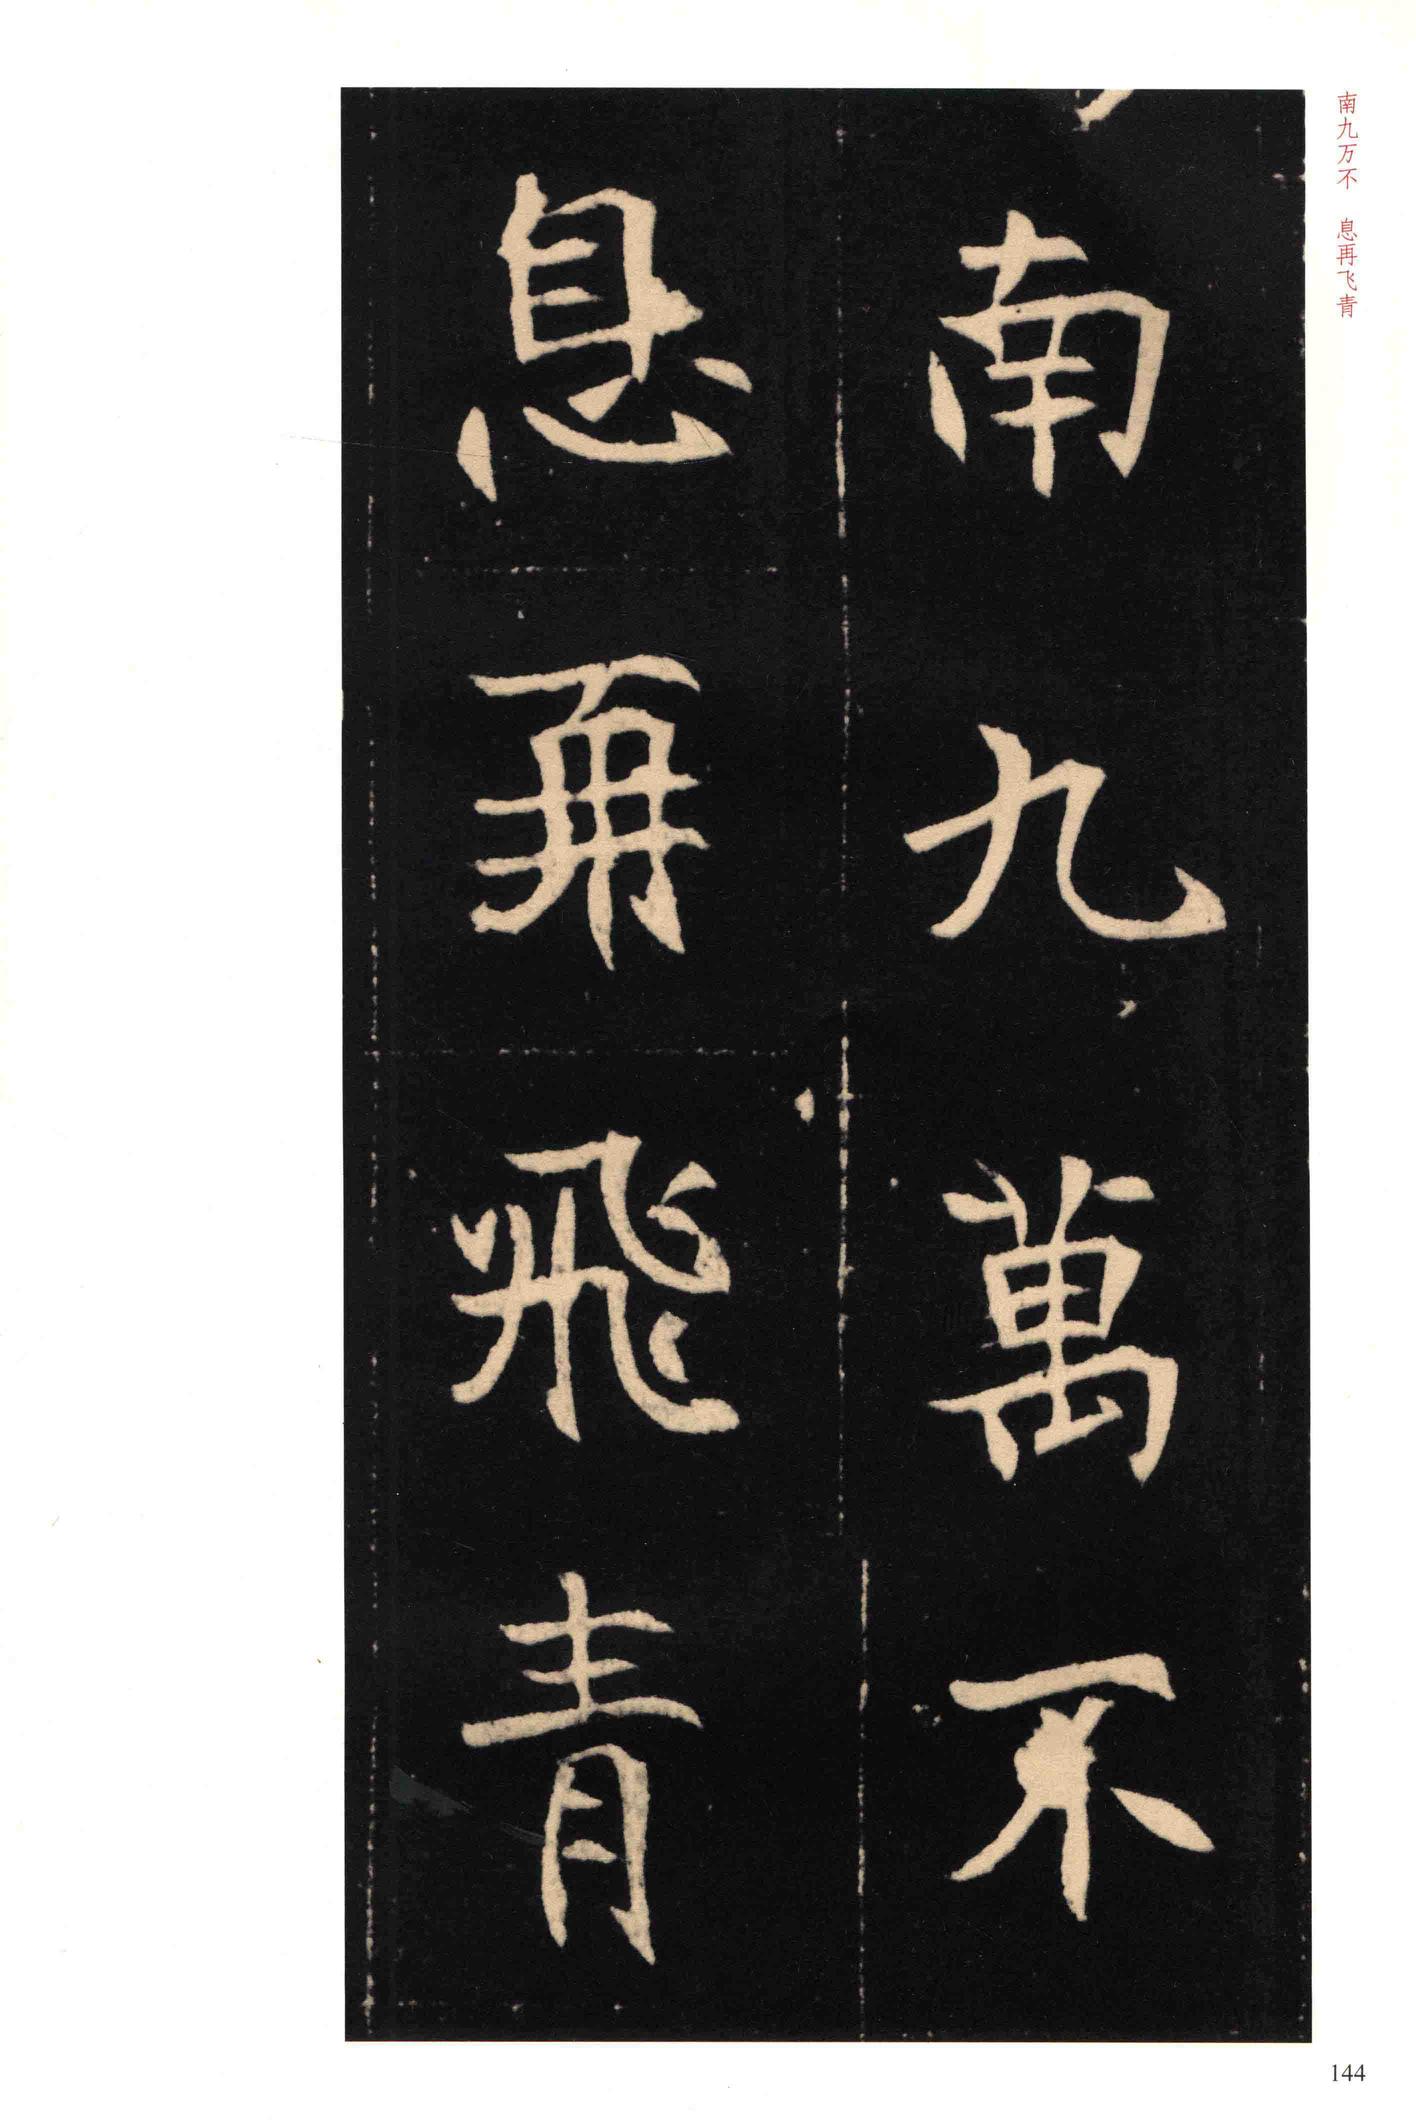 南九万不 息再飞青
南九萬不
息再飛青
144